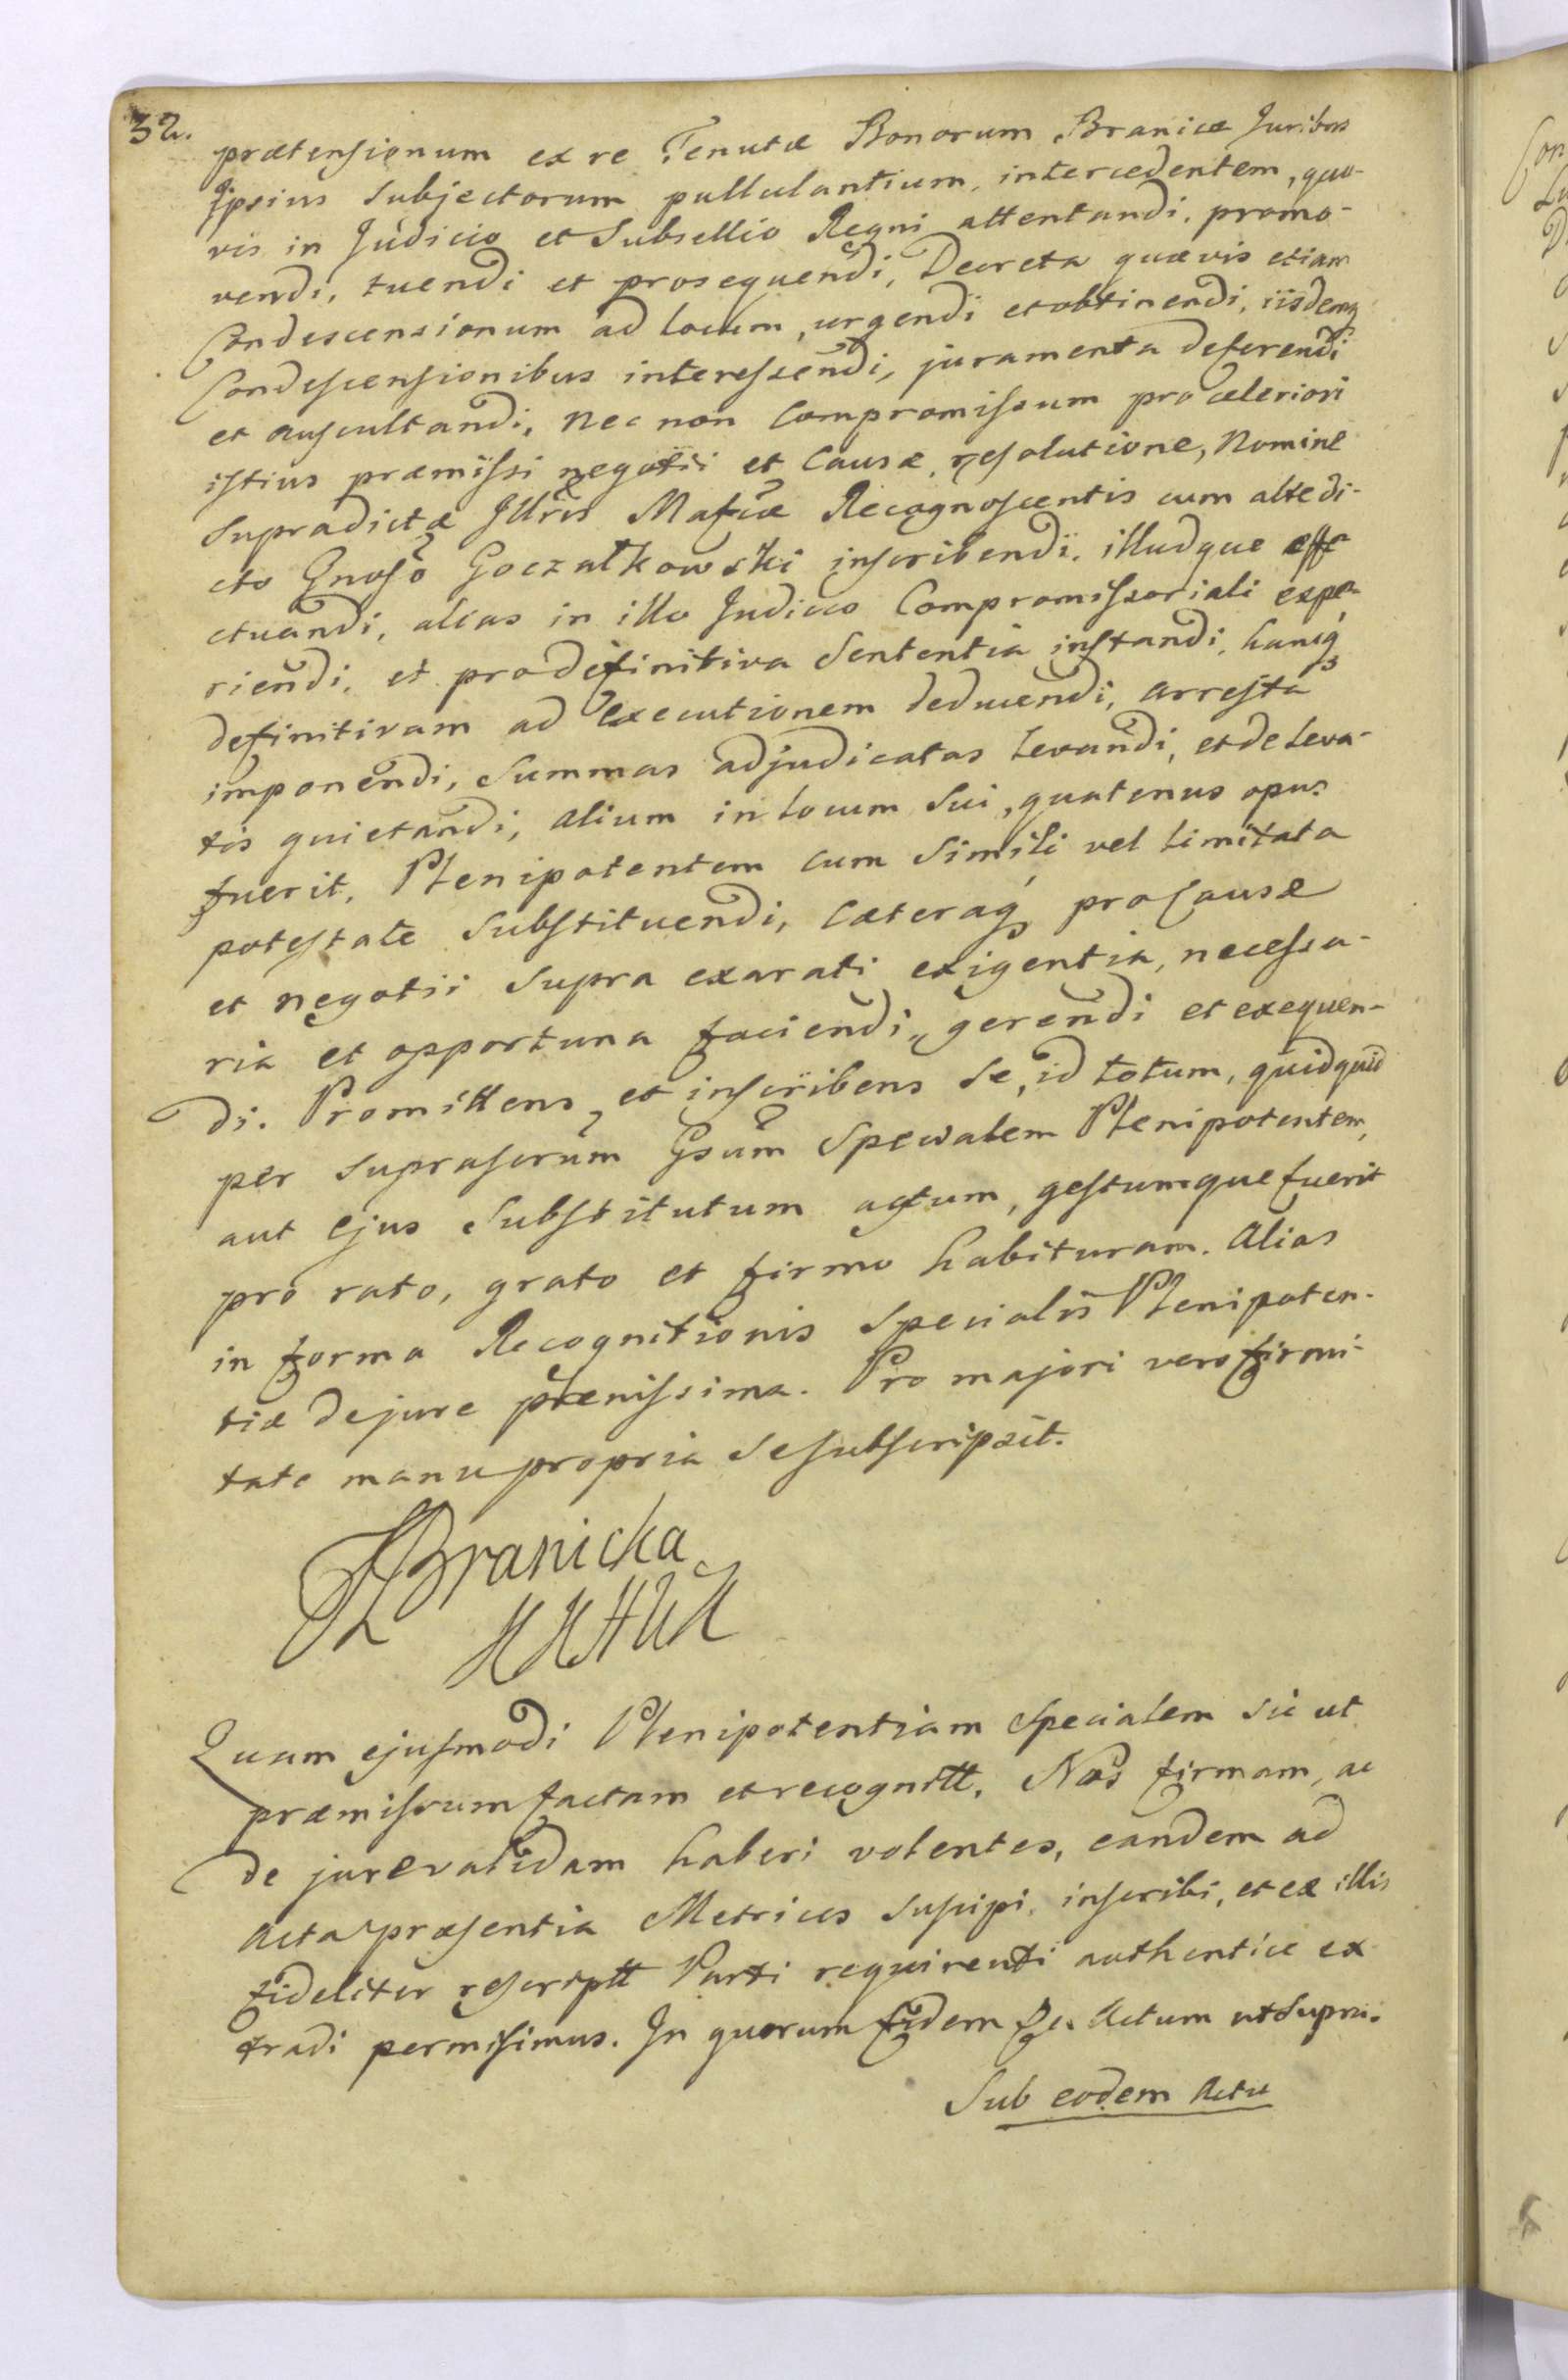 32.
prætensionum ex re Tenutæ Bonorum Branicæ Juribus
Ipsius Subjectorum pullulantium, intercedentem, quo-
vis in Judicio et Subsellio Regni attentandi, promo-
vendi, tuendi et prosequendi, Decreta quævis etiam
Condescensionum ad locum, urgendi et obtinendi, iisdemq
Condescensionibus interessendi, juramenta deferendi
et auscultandi, nec non Compromissum pro celeriori
istius præmissi negotii et Causæ, resolutione, Nomine
Supradictæ Illris Mafcæ Recognoscentis cum altedi-
cto Gnoso Goczałkowski inscribendi, illudque effe
ctuandi, alias in illo Judicio Compromissoriali expe-
riendi, et pro definitiva Sententia instandi, hancq
definitivam ad Executionem deducendi, arresta
imponendi, Summas adjudicatas levandi, et de leva-
tis quietandi, alium in locum Sui, quatenus opus
fuerit, Plenipotentem cum Simili vel limitata
potestate Substituendi, Cæteraq pro Causæ
et negotii Supra exarati exigentia, necessa-
ria et opportuna faciendi, gerendi et exequen-
di. Promittens, et inscribens Se, id totum, quidquid
per suprascrum Gsum Specialem Plenipotentem,
aut Ejus Substitutum actum, gestumque fuerit
pro rato, grato et firmo habituram. Alias
in forma Recognitionis Specialis Plenipoten-
tiæ de jure plenissima. Pro majori vero firmi-
tate manu propria Se subscripsit.
Branicka
Quam ejusmodi Plenipotentiam Specialem sic ut
præmissum factam et recognitt, Nos firmam, ac
de jure validam haberi volentes, eandem ad
Acta præsentia Metrices suscipi, inscribi, et ex illis
fideliter rescriptt Parti requirenti authentice ex-
tradi permisimus. In quorum fidem Actum ut Supra.
Sub eodem Actu